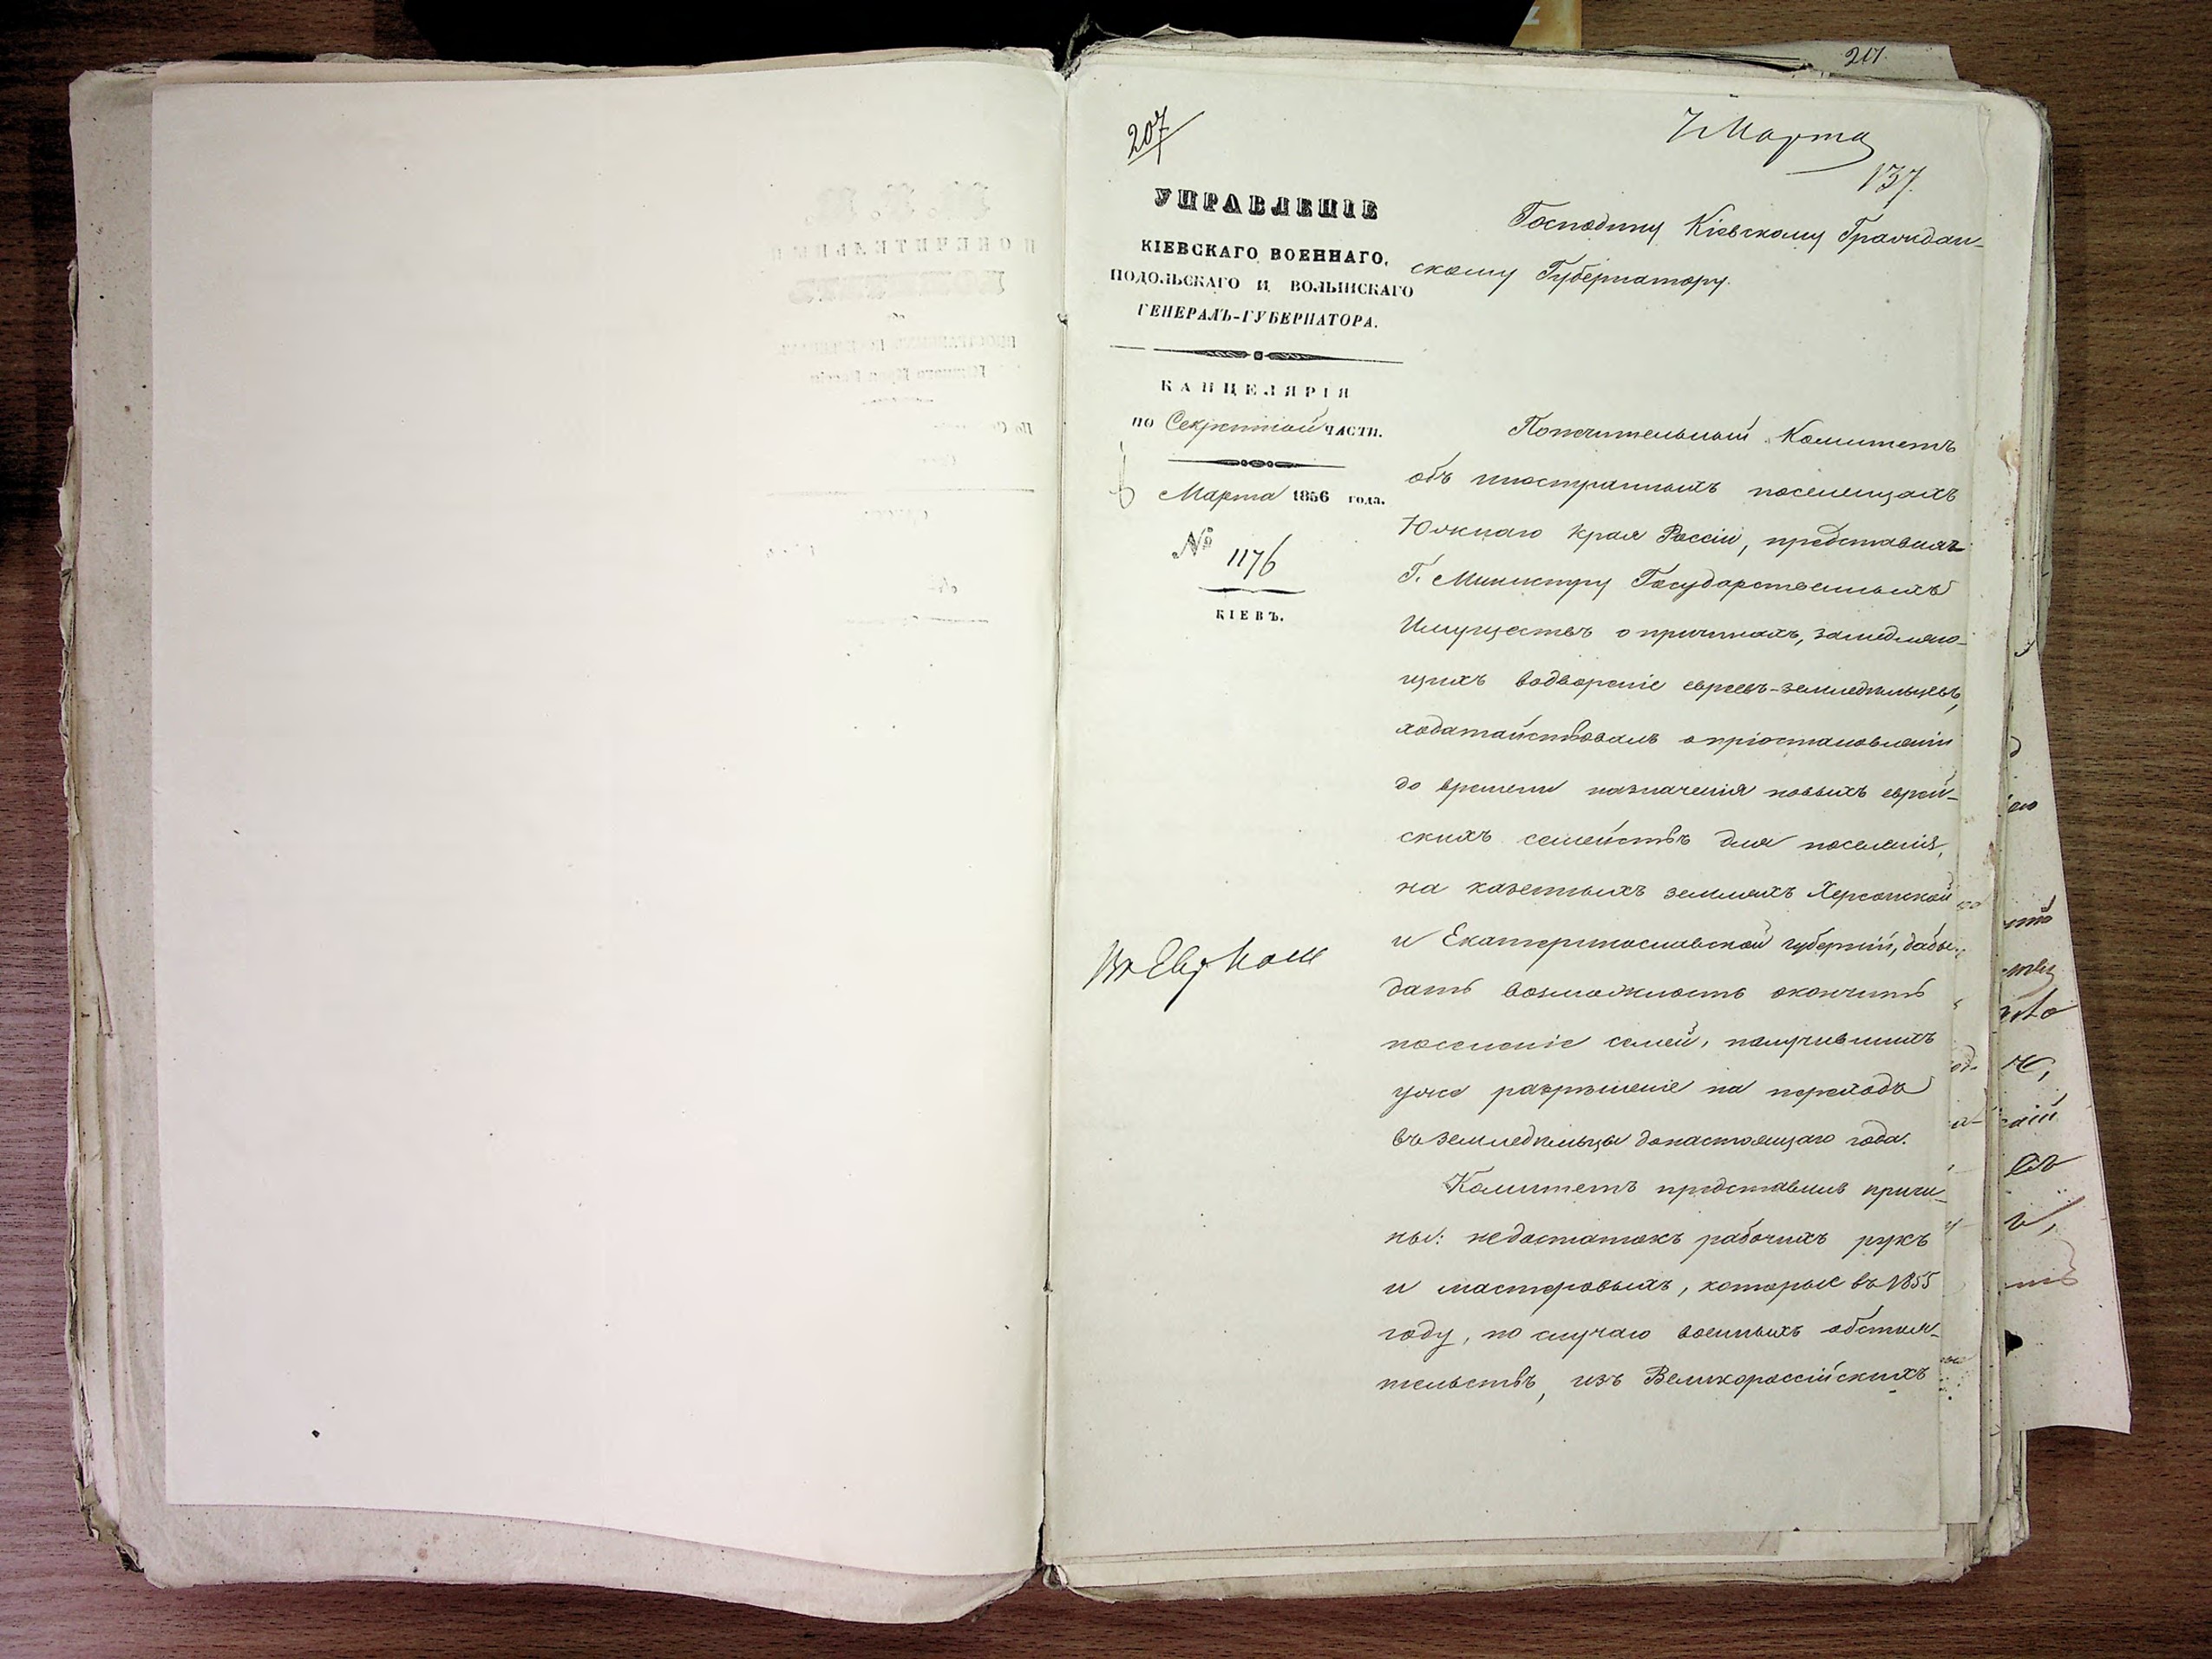 217.
207
7 Марта
137.
УПРАВЛЕНІЕ
КІЕВСКАГО ВОЕННАГО,
ПОДОЛЬСКАГО И ВОЛЫНСКАГО
ГЕНЕРАЛЪ-ГУБЕРНАТОРА.
КАНЦЕЛЯРІЯ
по Секретной ЧАСТИ.
6 Марта 1856 года.
№ 1176
КІЕВЪ.
Господину Кіевскому Граждан-
скому Губернатору.
Попечительный Комитетъ
объ иностранныхъ поселенцахъ
Южнаго края Россіи, представляя
Г. Министру Государственныхъ
Имуществъ о причинахъ, замедляю-
щихъ водвореніе евреевъ-земледѣльцевъ,
ходатайствовалъ о пріостановленіи
до времени назначенія новыхъ еврей-
скихъ семействъ для поселенія,
на казенныхъ земляхъ Херсонской
и Екатеринославской губерній, дабы
дать возможность окончить
поселеніе семей, получившихъ
уже разрѣшеніе на переходъ
въ земледѣльцы до настоящаго года.
Комитетъ представилъ причи-
ны: недостатокъ рабочихъ рукъ
и мастеровыхъ, которые въ 1855
году, по случаю военныхъ обстоя-
тельствъ, изъ Великороссійскихъ